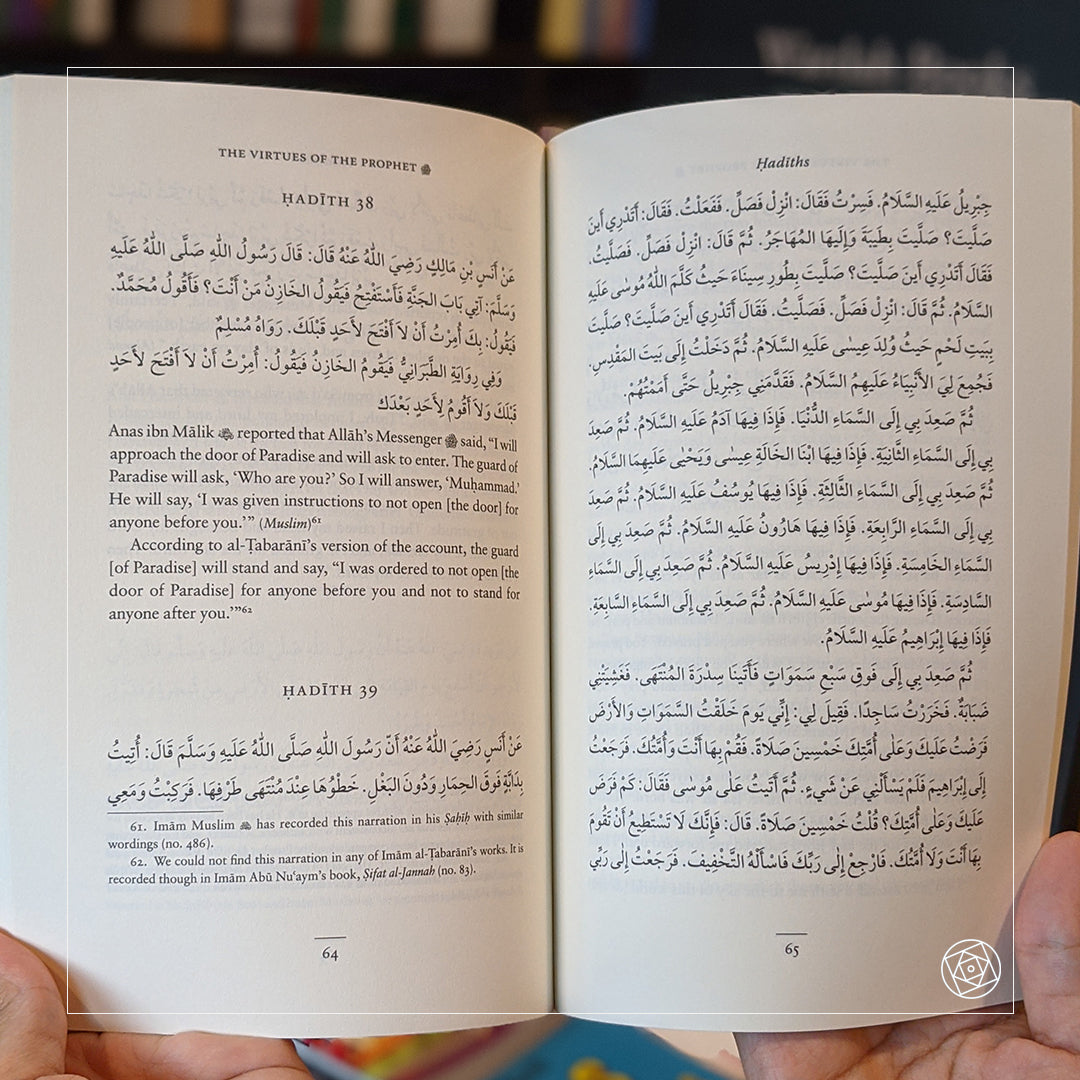 THE VIRTUES OF THE PROPHET ﷺ
ḤADĪTH 38
عَنْ أَنَسِ بْنِ مَالِكٍ رَضِيَ اللّٰهُ عَنْهُ قَالَ: قَالَ رَسُولُ اللّٰهِ صَلَّى اللّٰهُ عَلَيْهِ
وَسَلَّمَ: آتِي بَابَ الجَنَّةِ فَأَسْتَفْتِحُ فَيَقُولُ الخَازِنُ مَنْ أَنْتَ؟ فَأَقُولُ مُحَمَّدٌ.
فَيَقُولُ: بِكَ أُمِرْتُ أَنْ لاَ أَفْتَحَ لأَحَدٍ قَبْلَكَ. رَوَاهُ مُسْلِمٌ
وَفِي رِوَايَةِ الطَّبَرَانِيُّ فَيَقُومُ الخَازِنُ فَيَقُولُ: أُمِرْتُ أَنْ لاَ أَفْتَحَ لأَحَدٍ
قَبْلَكَ وَلاَ أَقُومُ لِأَحَدٍ بَعْدَكَ
Anas ibn Mālik reported that Allāh’s Messenger ﷺ said, “I will
approach the door of Paradise and will ask to enter. The guard of
Paradise will ask, ‘Who are you?’ So I will answer, ‘Muḥammad.’
He will say, ‘I was given instructions to not open [the door] for
anyone before you.’” (Muslim)⁶¹
According to al-Ṭabarānī’s version of the account, the guard
[of Paradise] will stand and say, “I was ordered to not open [the
door of Paradise] for anyone before you and not to stand for
anyone after you.’”⁶²
ḤADĪTH 39
عَنْ أَنَسٍ رَضِيَ اللّٰهُ عَنْهُ أَنّ رَسُولَ اللّٰهِ صَلَّى اللّٰهُ عَلَيْهِ وَسَلَّمَ قَالَ: أُتِيتُ
بِدَابَّةٍ فَوقَ الحِمَارِ وَدُونَ البَغْلِ. خَطْوُهَا عِنْدَ مُنْتَهَى طَرْفِهَا. فَرَكِبْتُ وَمَعِي
61. Imām Muslim has recorded this narration in his Ṣaḥīḥ with similar
wordings (no. 486).
62. We could not find this narration in any of Imām al-Ṭabarānī’s works. It is
recorded though in Imām Abū Nuʿaym’s book, Ṣifat al-Jannah (no. 83).
64
Ḥadīths
جِبْرِيلُ عَلَيهِ السَّلَامُ. فَسِرْتُ فَقَالَ: انْزِل فَصَلِّ. فَفَعَلْتُ. فَقَالَ: أَتَدْرِي أَينَ
صَلَّيتَ؟ صَلَّيتَ بِطَيبَةَ وَإِلَيهَا المُهَاجَرُ. ثُمَّ قَالَ: انْزِل فَصَلِّ. فَصَلَّيتُ.
فَقَالَ أَتَدْرِي أَينَ صَلَّيتَ؟ صَلَّيتَ بِطُورِ سِينَاءَ حَيثُ كَلَّمَ اللّٰهُ مُوسٰى عَلَيهِ
السَّلَامُ. ثُمَّ قَالَ: انْزِل فَصَلِّ. فَصَلَّيتُ. فَقَالَ أَتَدْرِي أَينَ صَلَّيتَ؟ صَلَّيتَ
بِبَيتِ لَحْمٍ حَيثُ وُلِدَ عِيسٰى عَلَيهِ السَّلَامُ. ثُمَّ دَخَلْتُ إِلَى بَيتَ المَقْدِسِ.
فَجُمِعَ لِيَ الأَنْبِيَاءُ عَلَيهِمُ السَّلَامُ. فَقَدَّمَنِي جِبْرِيلُ حَتَّى أَمَمْتُهُمْ.
ثُمَّ صَعِدَ بِي إِلَى السَّمَاءِ الدُّنْيَا. فَإِذَا فِيهَا آدَمُ عَلَيهِ السَّلَامُ. ثُمَّ صَعِدَ
بِي إِلَى السَّمَاءِ الثَّانِيَةِ. فَإِذَا فِيهَا ابْنَا الخَالَةِ عِيسٰى وَيَحْيٰى عَلَيهِمَا السَّلَامُ.
ثُمَّ صَعِدَ بِي إِلَى السَّمَاءِ الثَّالِثَةِ. فَإِذَا فِيهَا يُوسُفُ عَلَيهِ السَّلَامُ. ثُمَّ صَعِدَ
بِي إِلَى السَّمَاءِ الرَّابِعَةِ. فَإِذَا فِيهَا هَارُونُ عَلَيهِ السَّلَامُ. ثُمَّ صَعِدَ بِي إِلَى
السَّمَاءِ الخَامِسَةِ. فَإِذَا فِيهَا إِدْرِيسُ عَلَيهِ السَّلَامُ. ثُمَّ صَعِدَ بِي إِلَى السَّمَاءِ
السَّادِسَةِ. فَإِذَا فِيهَا مُوسٰى عَلَيهِ السَّلَامُ. ثُمَّ صَعِدَ بِي إِلَى السَّمَاءِ السَّابِعَةِ.
فَإِذَا فِيهَا إِبْرَاهِيمُ عَلَيهِ السَّلَامُ.
ثُمَّ صَعِدَ بِي إِلَى فَوقِ سَبْعِ سَمَوَاتٍ فَأَتَينَا سِدْرَةَ المُنْتَهَى. فَغَشِيَتْنِي
ضَبَابَةٌ. فَخَرَرْتُ سَاجِدًا. فَقِيلَ لِي: إِنِّي يَومَ خَلَقْتُ السَّمَوَاتِ وَالأَرْضَ
فَرَضْتُ عَلَيكَ وَعَلٰى أُمَّتِكَ خَمْسِينَ صَلَاةً. فَقُمْ بِهَا أَنْتَ وَأُمَّتُكَ. فَرَجَعْتُ
إِلٰى إِبْرَاهِيمَ فَلَمْ يَسْأَلْنِي عَنْ شَيءٍ. ثُمَّ أَتَيتُ عَلٰى مُوسٰى فَقَالَ: كَمْ فَرَضَ
عَلَيكَ وَعَلٰى أُمَّتِكَ؟ قُلْتُ خَمْسِينَ صَلَاةً. قَالَ: فَإِنَّكَ لَا تَسْتَطِيعُ أَنْ تَقُومَ
بِهَا أَنْتَ وَلَا أُمَّتُكَ. فَارْجِعْ إِلٰى رَبِّكَ فَاسْأَلْهُ التَّخْفِيفَ. فَرَجَعْتُ إِلٰى رَبِّي
65